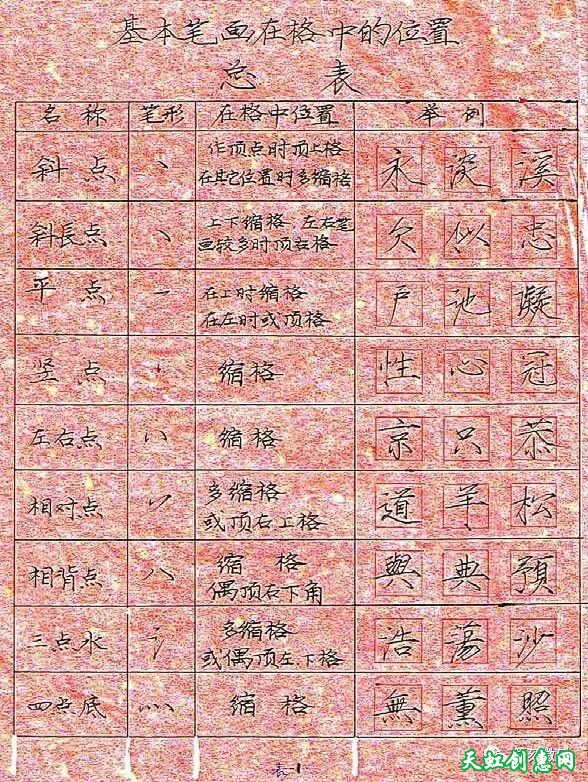 基本笔画在格中的位置
总 表
名称 笔形 在格中位置 举例
斜点 丶 作顶点时顶上格
在其它位置时多缩格 永 淡 溪
斜長点 丶 上下缩格 左右笔
画较多时顶右格 欠 似 忠
平点 在上时缩格
在左时或顶格 户 池 凝
竖点 缩格 性 心 冠
左右点 缩格 京 只 恭
相对点 多缩格
或顶右上格 道 羊 松
相背点 缩格
偶顶右下角 與 典 預
三点水 氵 多缩格
或偶顶左下格 浩 蕩 沙
四点底 灬 缩格 無 薰 照
表1
天虹创意网